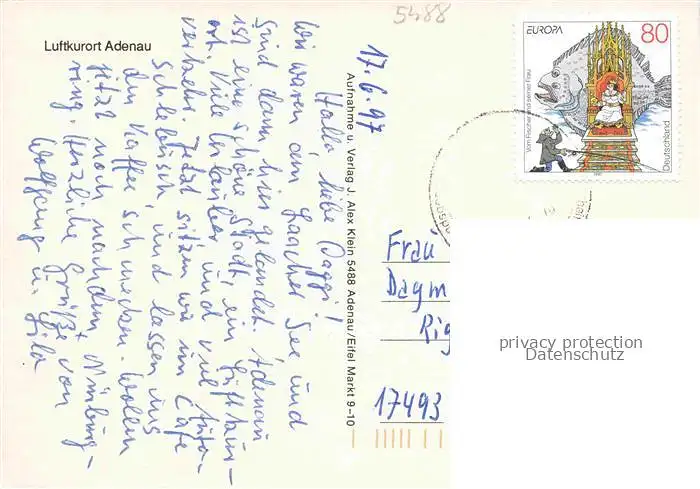 Luftkurort Adenau
5488
17.6.97
Hallo liebe Daggi!
Wir waren am Laacher See und
sind dann hier gelandet. Adenau
ist eine schöne Stadt, ein Luftkur-
ort. Viele Urlauber und viel Auto-
verkehr. Jetzt sitzen wir im Cafe
Schlebusch und lassen uns
den Kaffee schmecken. Wollen
jetzt noch nach dem Nürburg-
ring. Herzliche Grüße von
Wolfgang u.
Aufnahme u. Verlag J. Alex Klein 5488 Adenau/Eifel Markt 9-10
EUROPA
80
Vom Fischer und seiner Frau
Deutschland
1997
Frau
Dagm
Rig
17493
privacy protection
Datenschutz